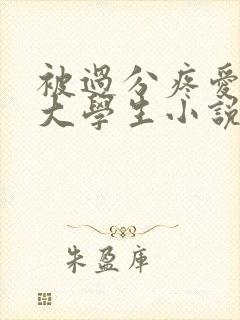 被過分疼愛
大學生小說
朱盈庫